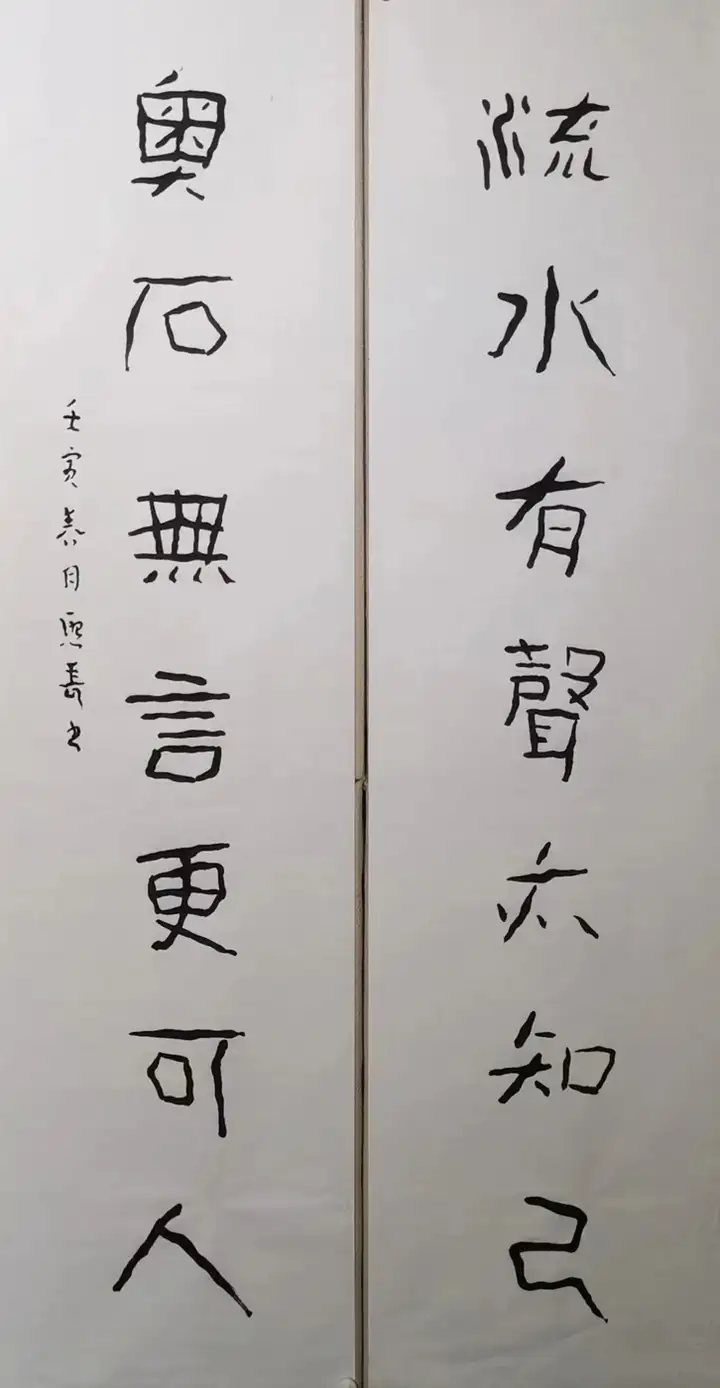 流水有聲亦知己
奧石無言更可人
壬寅春月熙長书